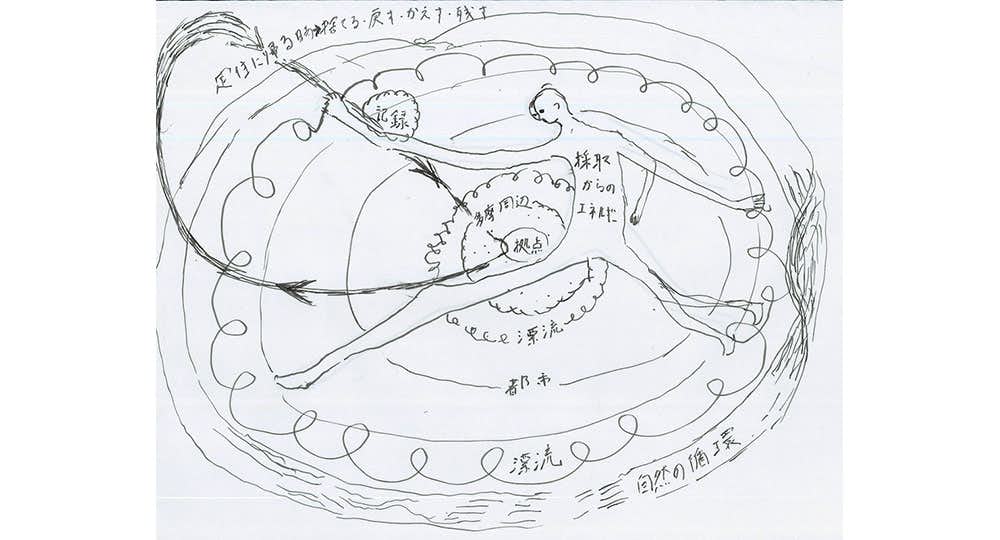 定住に帰る時に捨てる・戻す・かえす・残す
記録
採取
からの
エネルギー
多摩周辺
拠点
漂流
都市
漂流
自然の循環